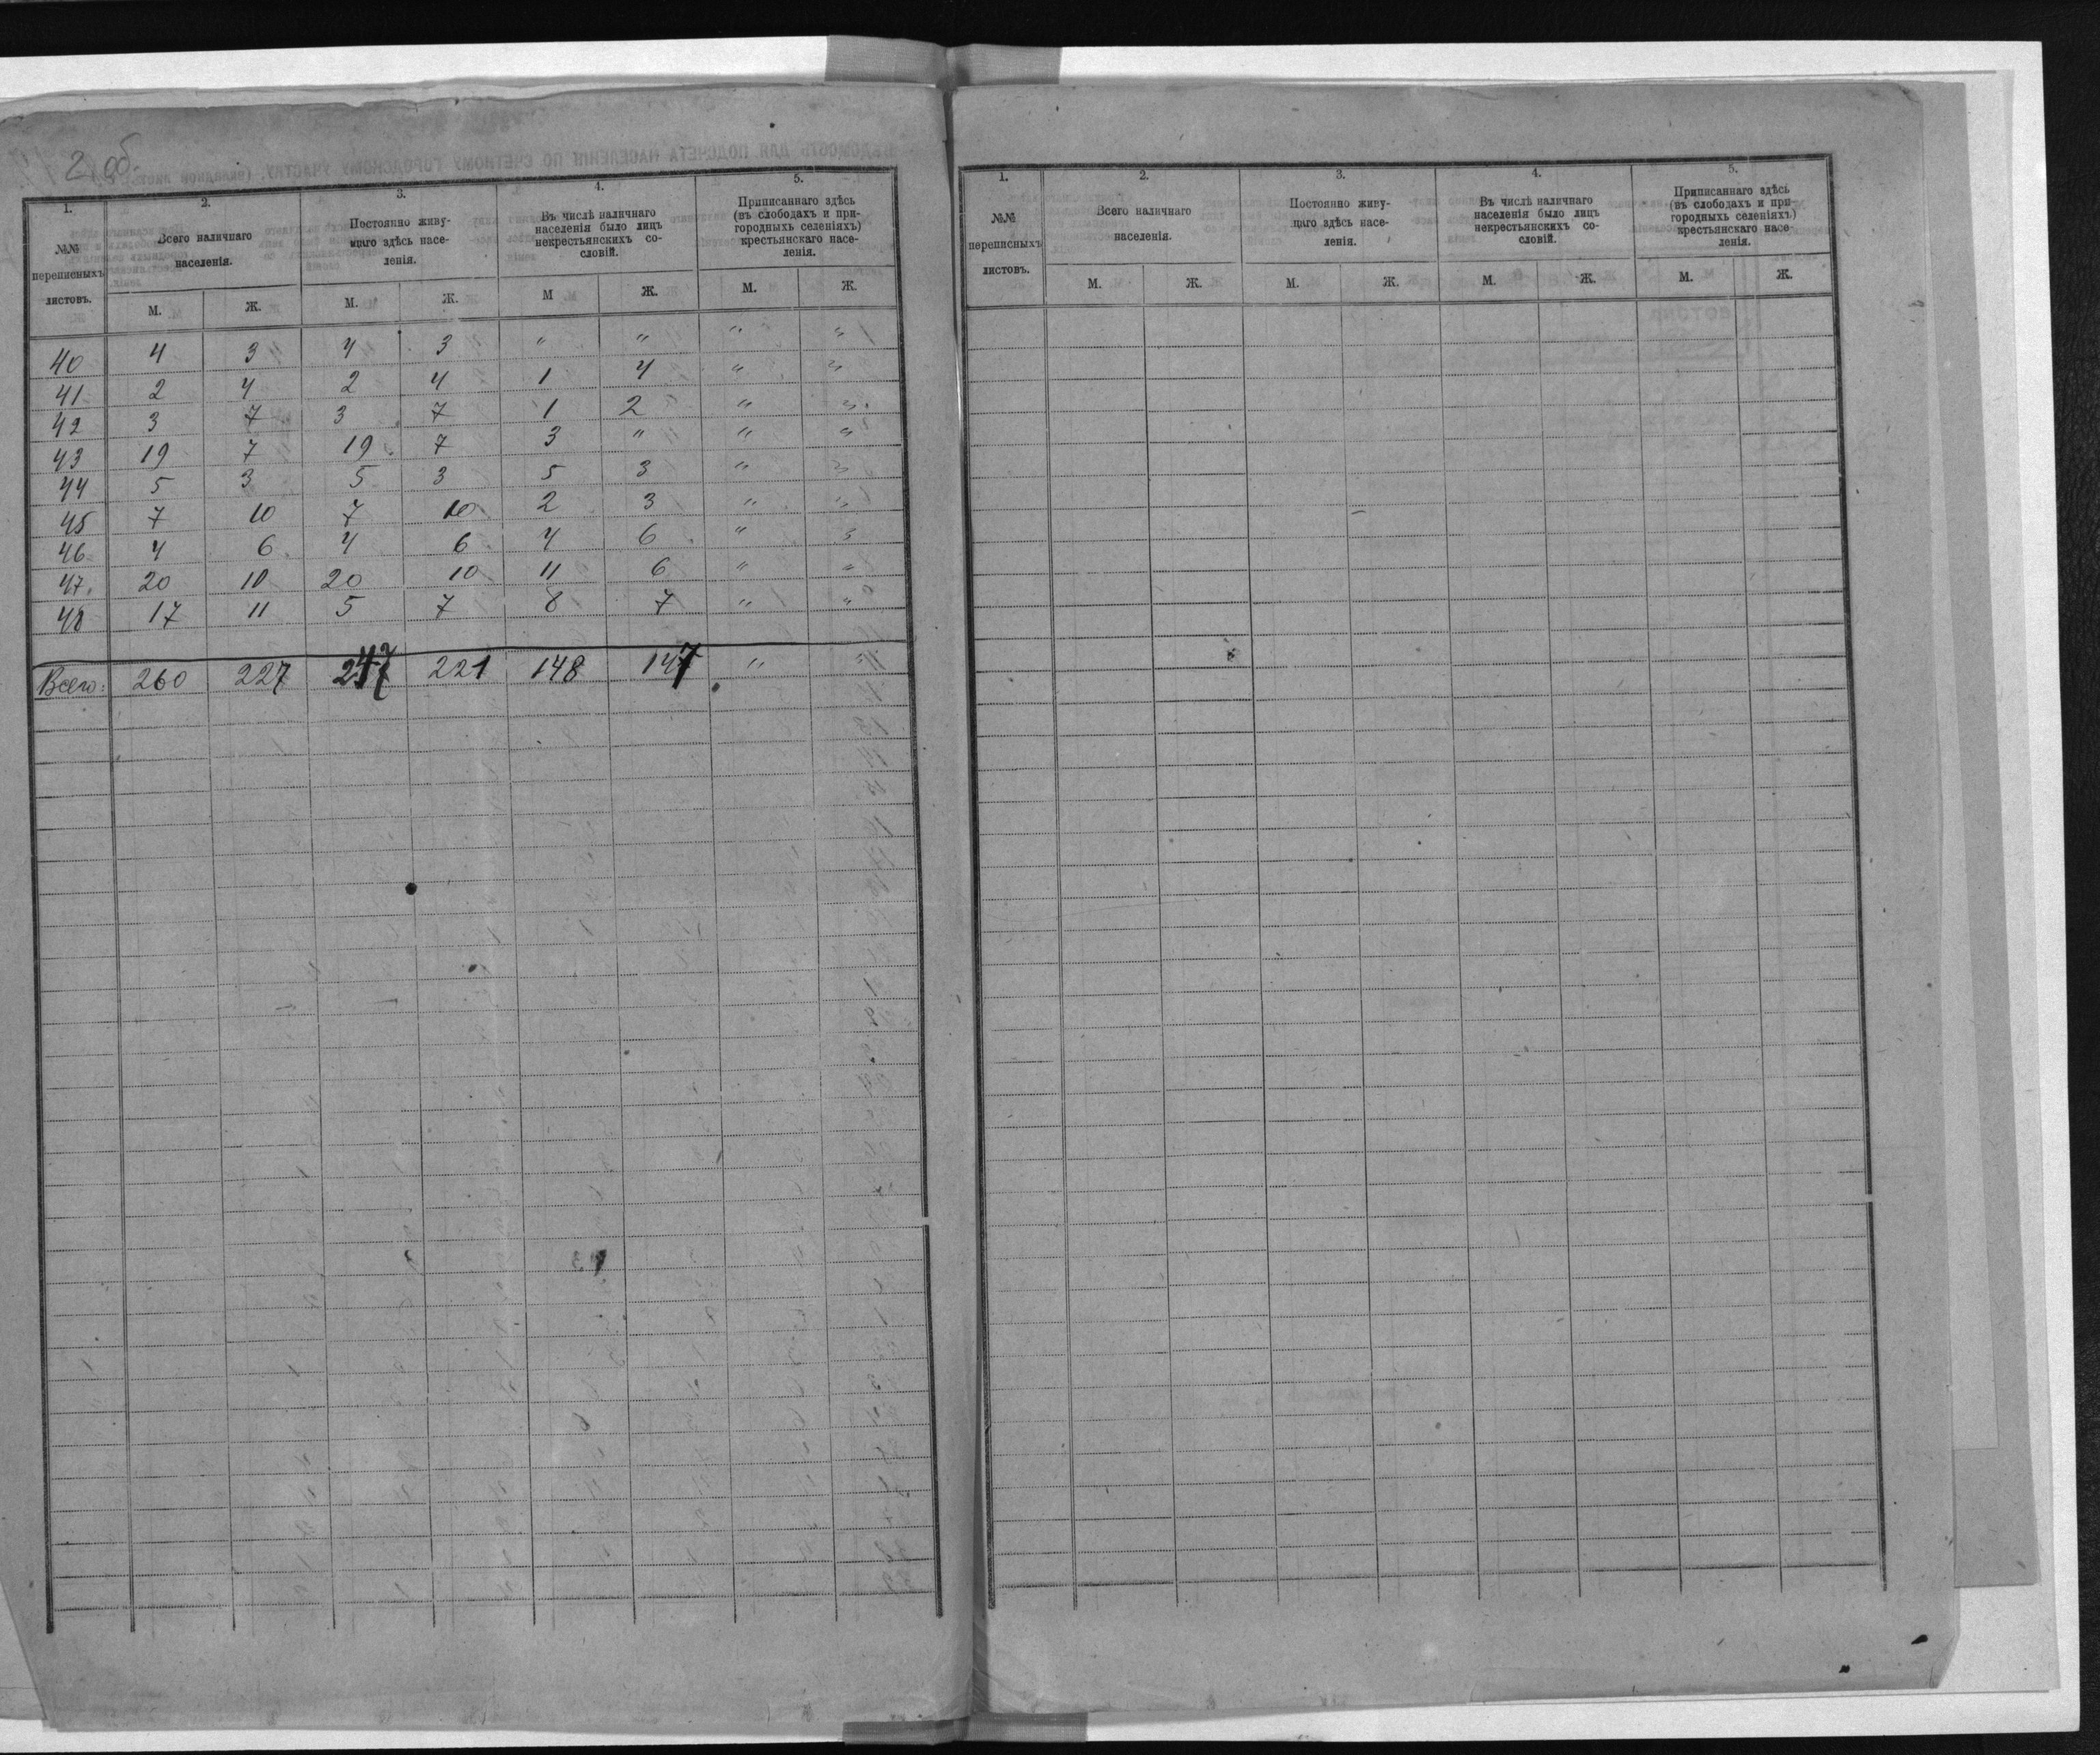 2 об.
1. 2. 3. 4. 5.
№№ переписныхъ листовъ.
Всего наличнаго населенія.
Постоянно живущаго здѣсь населенія.
Въ числѣ наличнаго населенія было лицъ некрестьянскихъ сословій.
Приписаннаго здѣсь (въ слободахъ и пригородныхъ селеніяхъ) крестьянскаго населенія.
М. Ж. М. Ж. М Ж. М. Ж.
40 4 3 4 3 " " " "
41 2 4 2 4 1 4 " "
42 3 7 3 7 1 2 " "
43 19 7 19 7 3 " " "
44 5 3 5 3 5 3 " "
45 7 10 7 10 2 3 " "
46 4 6 4 6 4 6 " "
47. 20 10 20 10 11 6 " "
48 17 11 5 7 8 7 " "
Всего: 260 227 247 221 148 147 " "
1. 2. 3. 4. 5.
№№ переписныхъ листовъ.
Всего наличнаго населенія.
Постоянно живущаго здѣсь населенія.
Въ числѣ наличнаго населенія было лицъ некрестьянскихъ сословій.
Приписаннаго здѣсь (въ слободахъ и пригородныхъ селеніяхъ) крестьянскаго населенія.
М. Ж. М. Ж. М. Ж. М. Ж.